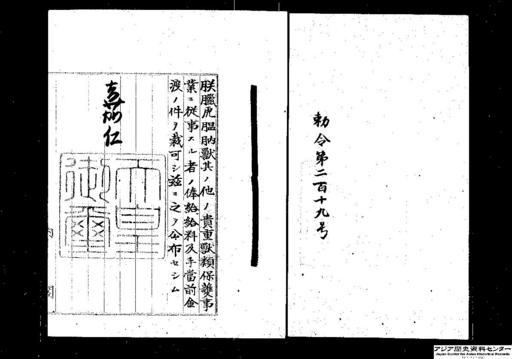 勅令第二百十九号
朕臘虎膃肭獸其ノ他ノ貴重獸類保護事
業ニ從事スル者ノ俸給給料及手當前金
渡ノ件ヲ裁可シ茲ニ之ヲ公布セシム
嘉仁
天皇
御璽
内閣
アジア歴史資料センター
Japan Center for Asian Historical Records